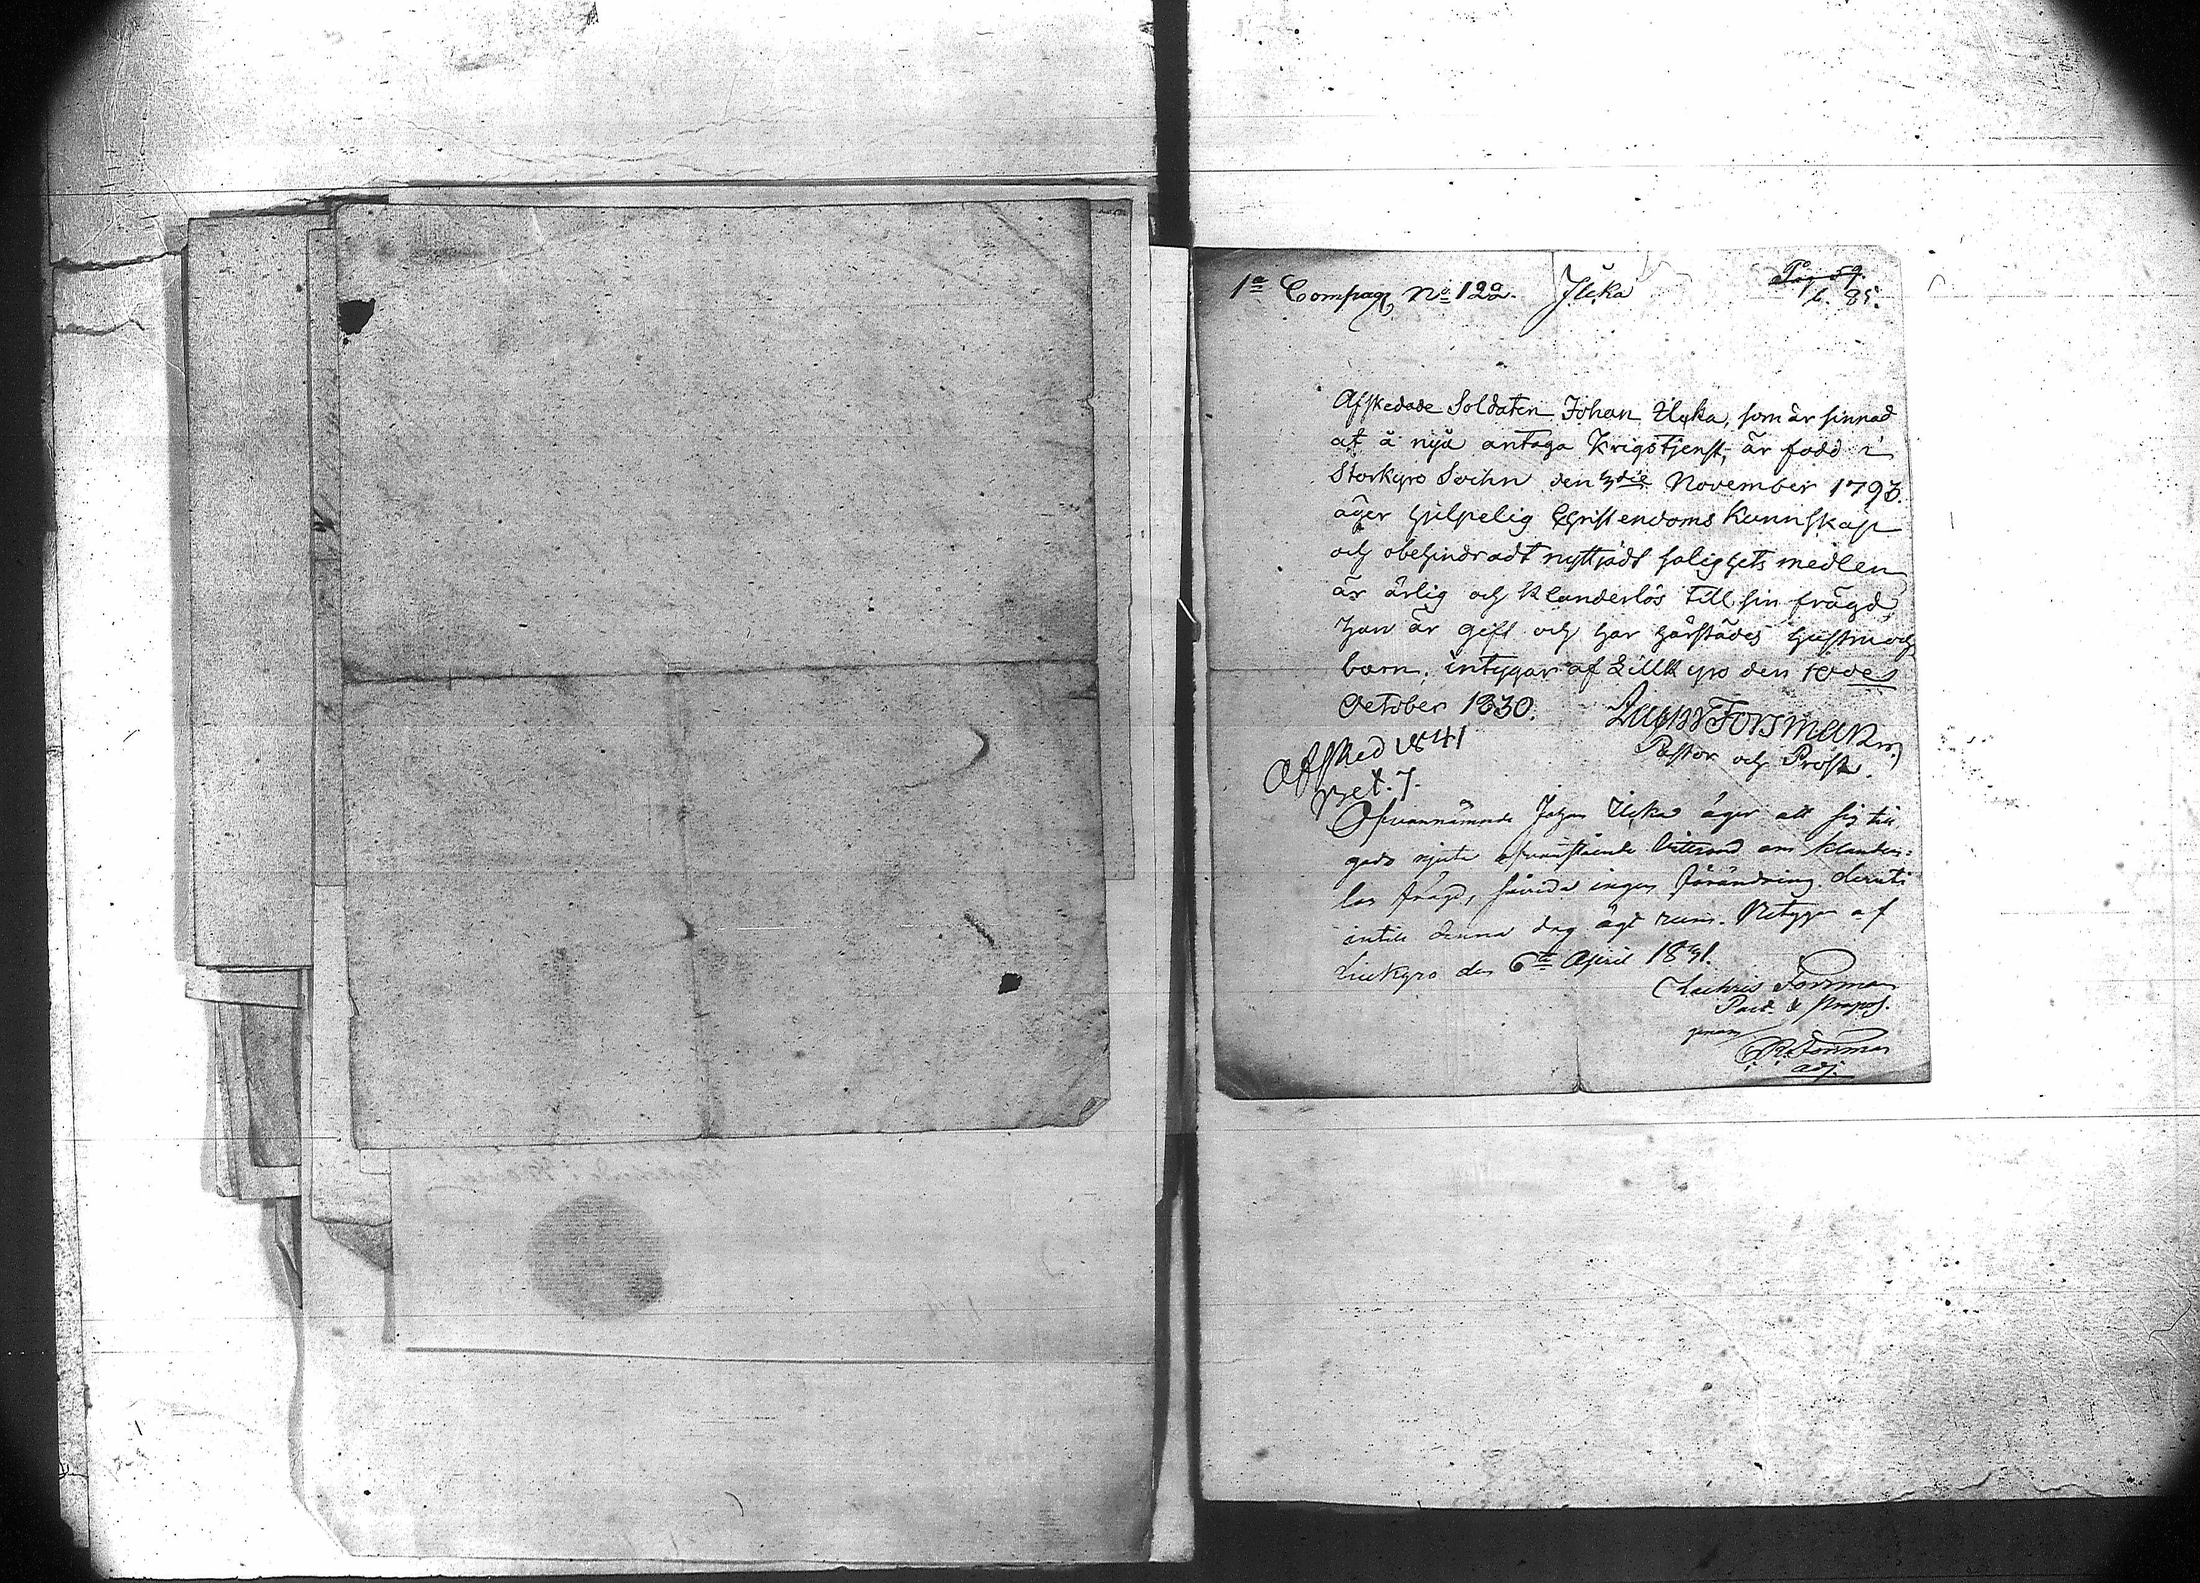 1a Compag No 122. Ilcka
Pag 59.
b. 85.
Afskedade Soldaten Johan Ilcka, som är sinnad
at å nyå antaga Krigstjenst, är född i
Storkyro Sochn den 3die November 1793.
äger hjelpelig Christendoms Kunnskap
och obehindradt nyttjadt salighets medlen
är ärlig och Klanderlös till sin frägd,
han är gift och har härstädes hustru och
barn; intygar af Lillkyro den 18des
October 1830. Forsman
Pastor och Prost.
Afsked 1841
Ofvannämnde Johan Ilcka äger att sig till
godo njuta ofvanstående Vitsord om klander-
lös frägd, såvida ingen förändring deruti
intill denna dag ägt rum. Betygar af
Lillkyro den 6te April 1831.
Zachris Forsman
Past. & Prapos.
genom
Forsman
adj.